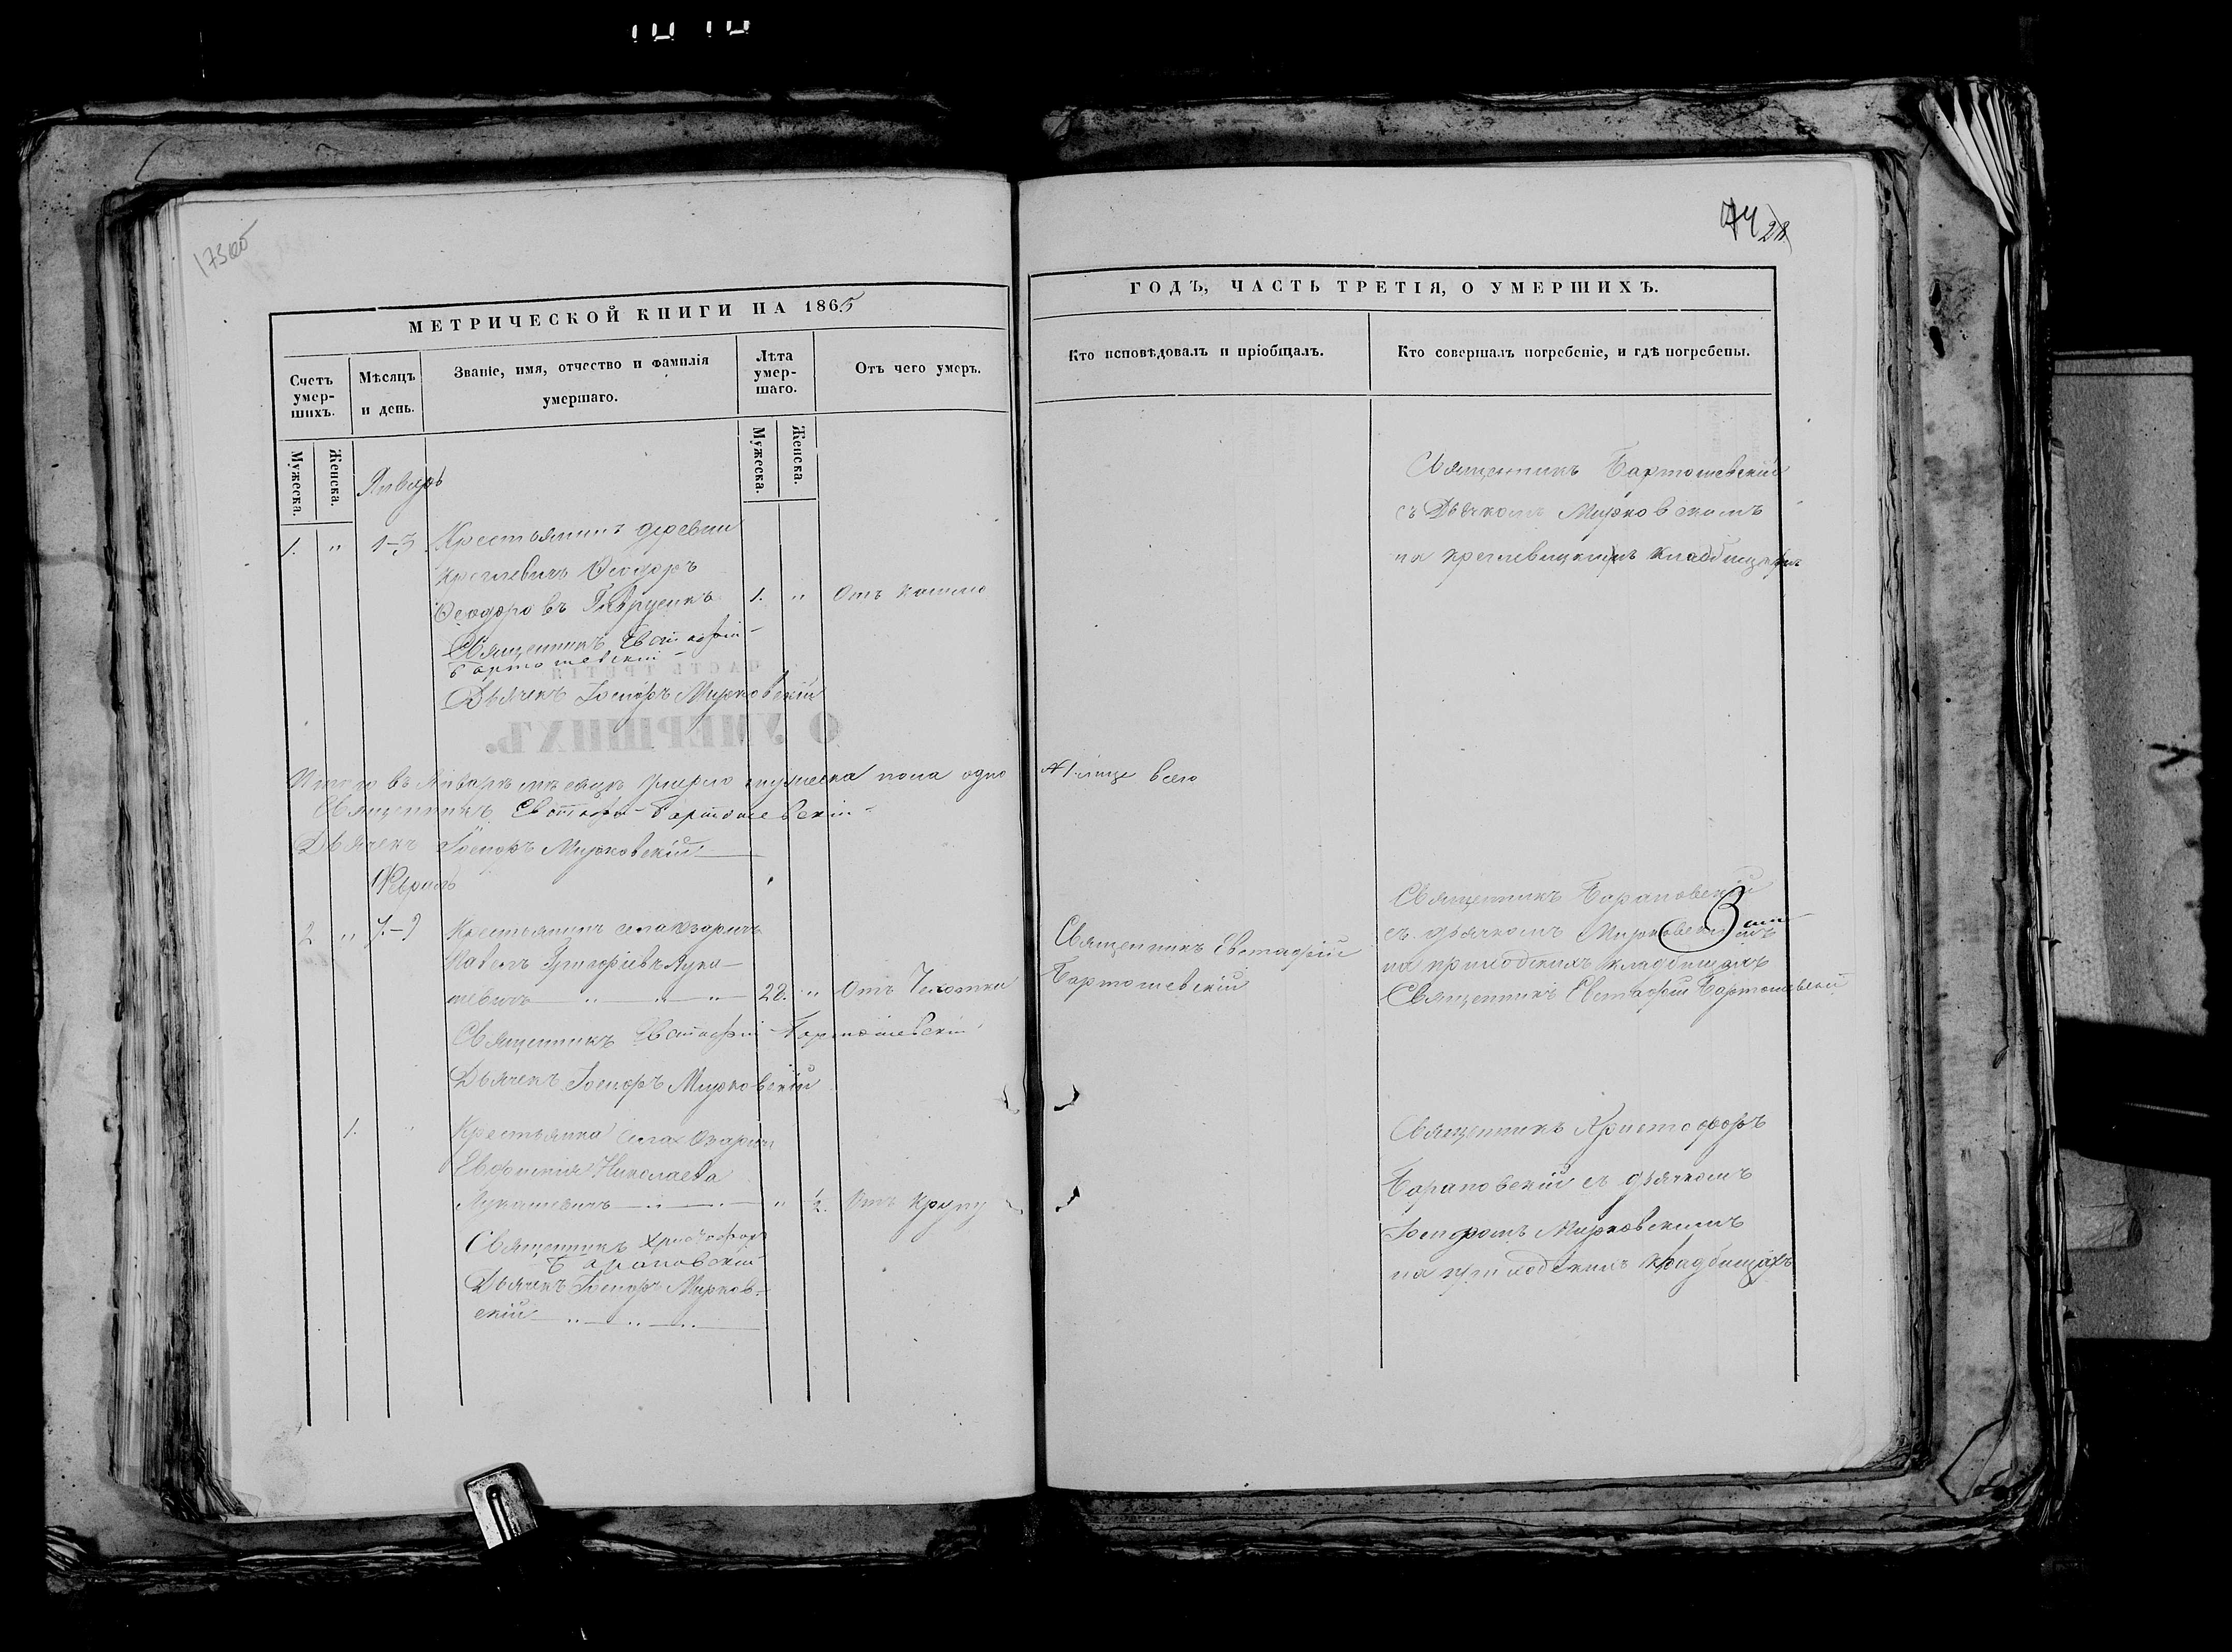 173об
МЕТРИЧЕСКОЙ КНИГИ НА 1865
Счетъ умер-шихъ.
Мѣсяцъ и день.
Званіе, имя, отчество и фамилія умершаго.
Лѣта умер-шаго.
Отъ чего умеръ.
Мужеска.
Женска.
Мужеска.
Женска.
Январь
1. " 1-3 Крестьянинъ деревни
Ѳеодоръ
Ѳеодоровъ 1. " Отъ
Священникъ Евстафій
Бартошевскій
Дьячекъ Іосифъ Мирковскій
Итого въ Январѣ мѣсяцѣ умерло мужеска пола одно
Священникъ Евстафій Бартошевскій
Дьячекъ Іосифъ Мирковскій
Февраль
2 " 7-9 Крестьянинъ села Озаричъ
Павелъ Григоріевъ Лука-
шевичъ 22. " Отъ Чахотки
Священникъ Евстафій Бартошевскій
Дьячекъ Іосифъ Мирковскій
1. " Крестьянка села Озаричъ
Евфимія Николаева
Лукашевичъ " ½. Отъ Крупу
Священникъ Христофоръ
Барановскій
Дьячекъ Іосифъ Мирков-
скій
74
28
ГОДЪ, ЧАСТЬ ТРЕТІЯ, О УМЕРШИХЪ.
Кто исповѣдовалъ и пріобщалъ.
Кто совершалъ погребеніе, и гдѣ погребены.
Священникъ Бартошевскій
съ Дьячкомъ Мирковскимъ
на кладбищахъ
№ 1 лице всего
Священникъ Евстафій
Бартошевскій
Священникъ Барановскій
съ дьячкомъ Мирковскимъ
на приходскихъ кладбищахъ
Священникъ Евстафій Бартошевскій
Священникъ Христофоръ
Барановскій съ дьячкомъ
Іосифомъ Мирковскимъ
на приходскихъ кладбищахъ